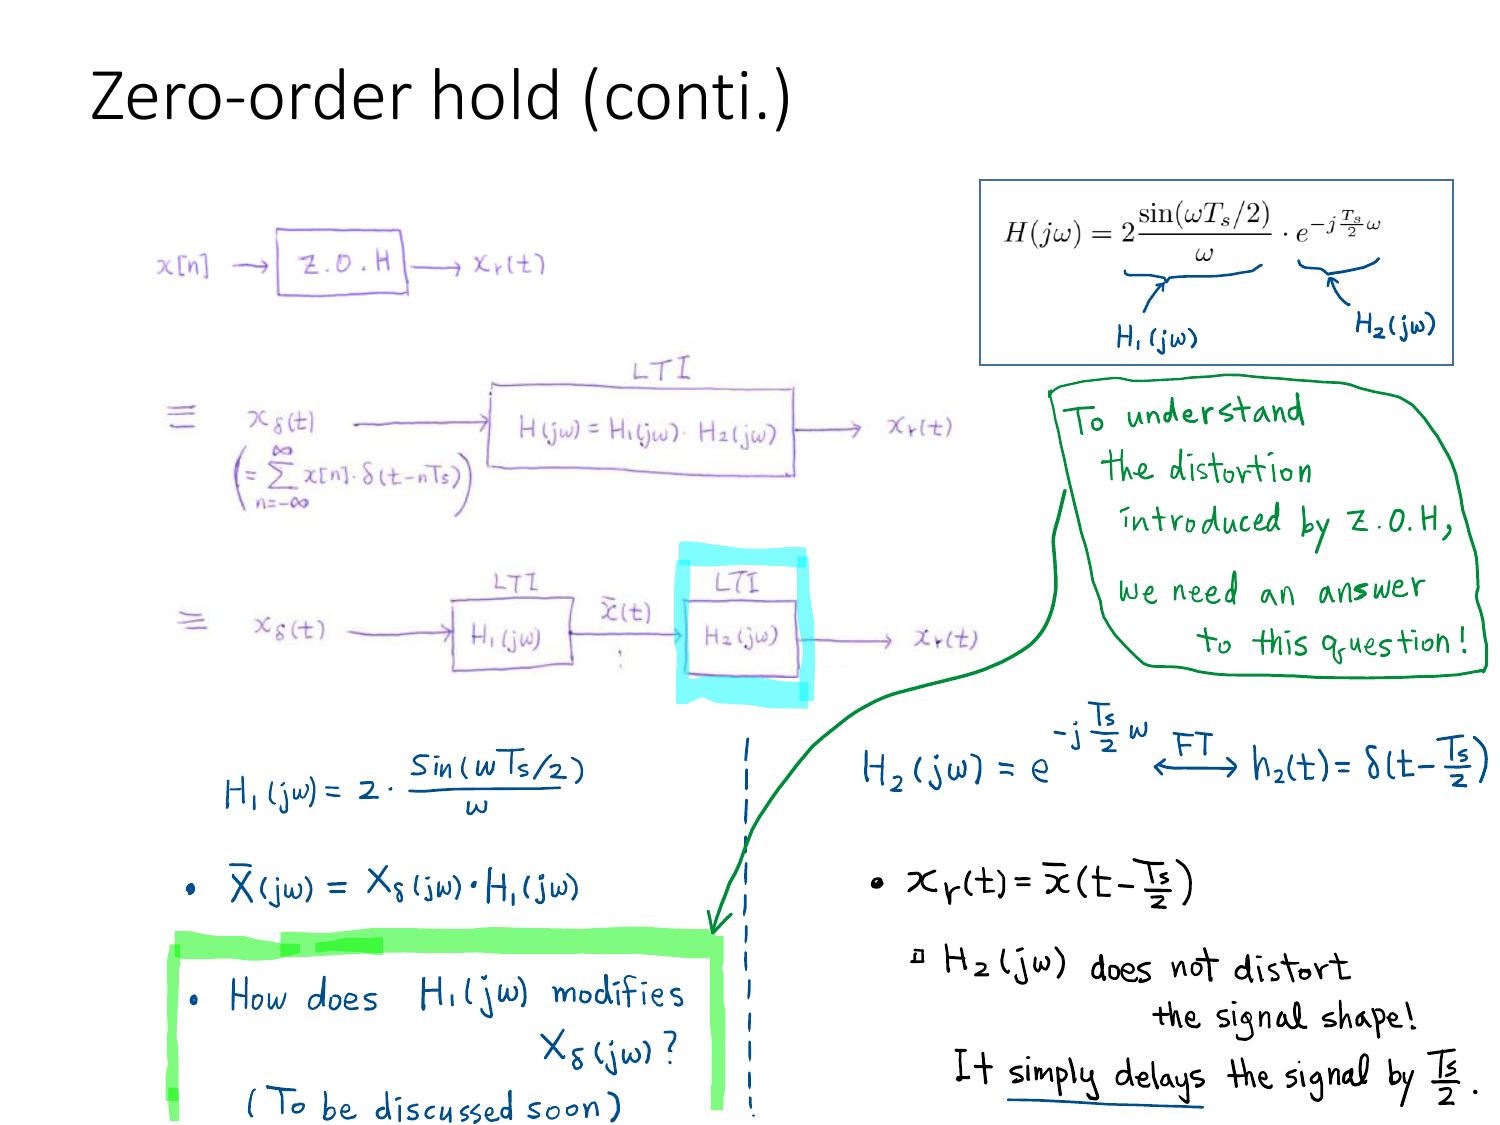 Zero-order hold (conti.)
x[n] → Z.O.H → xᵣ(t)
H(jω) = 2 sin(ωTₛ/2)/ω · e^{-j (Tₛ/2) ω}
H₁(jω)
H₂(jω)
LTI
≡ x_δ(t) → H(jω) = H₁(jω) · H₂(jω) → xᵣ(t)
(= ∑_{n=-∞}^{∞} x[n] · δ(t-nTₛ))
To understand
the distortion
introduced by Z.O.H,
we need an answer
to this question!
LTI x̄(t) LTI
≡ x_δ(t) → H₁(jω) → H₂(jω) → xᵣ(t)
H₁(jω) = 2 · sin(ωTₛ/2)/ω
• X̄(jω) = X_δ(jω) · H₁(jω)
• How does H₁(jω) modifies
X_δ(jω)?
(To be discussed soon)
H₂(jω) = e^{-j (Tₛ/2) ω} ⟷FT h₂(t) = δ(t - Tₛ/2)
• xᵣ(t) = x̄(t - Tₛ/2)
▫ H₂(jω) does not distort
the signal shape!
It simply delays the signal by Tₛ/2.